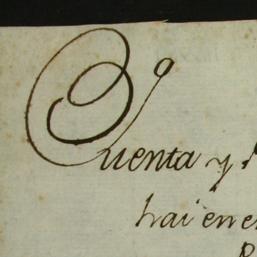 Cuenta y
hai en e